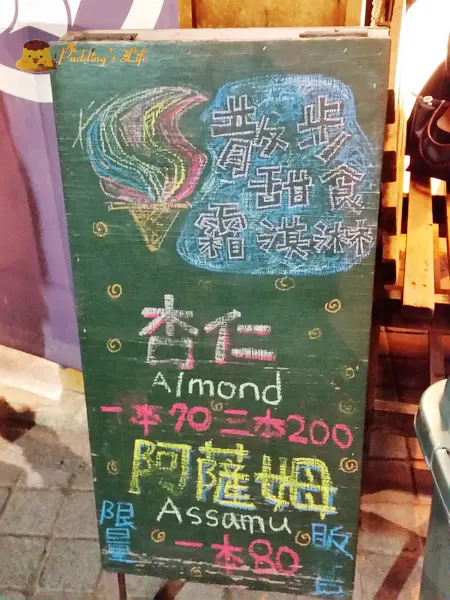 Pudding's Life
散步
甜食
霜淇淋
杏仁
Almond
一本70三本200
阿薩姆
Assamu
一本80
限量
販